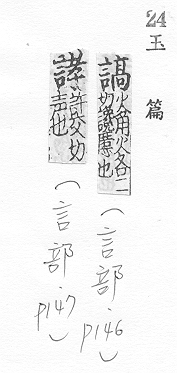 24
玉篇
謞火角火各二切讒慝也
(言部.p146)
謼許交切声也
(言部.p147)